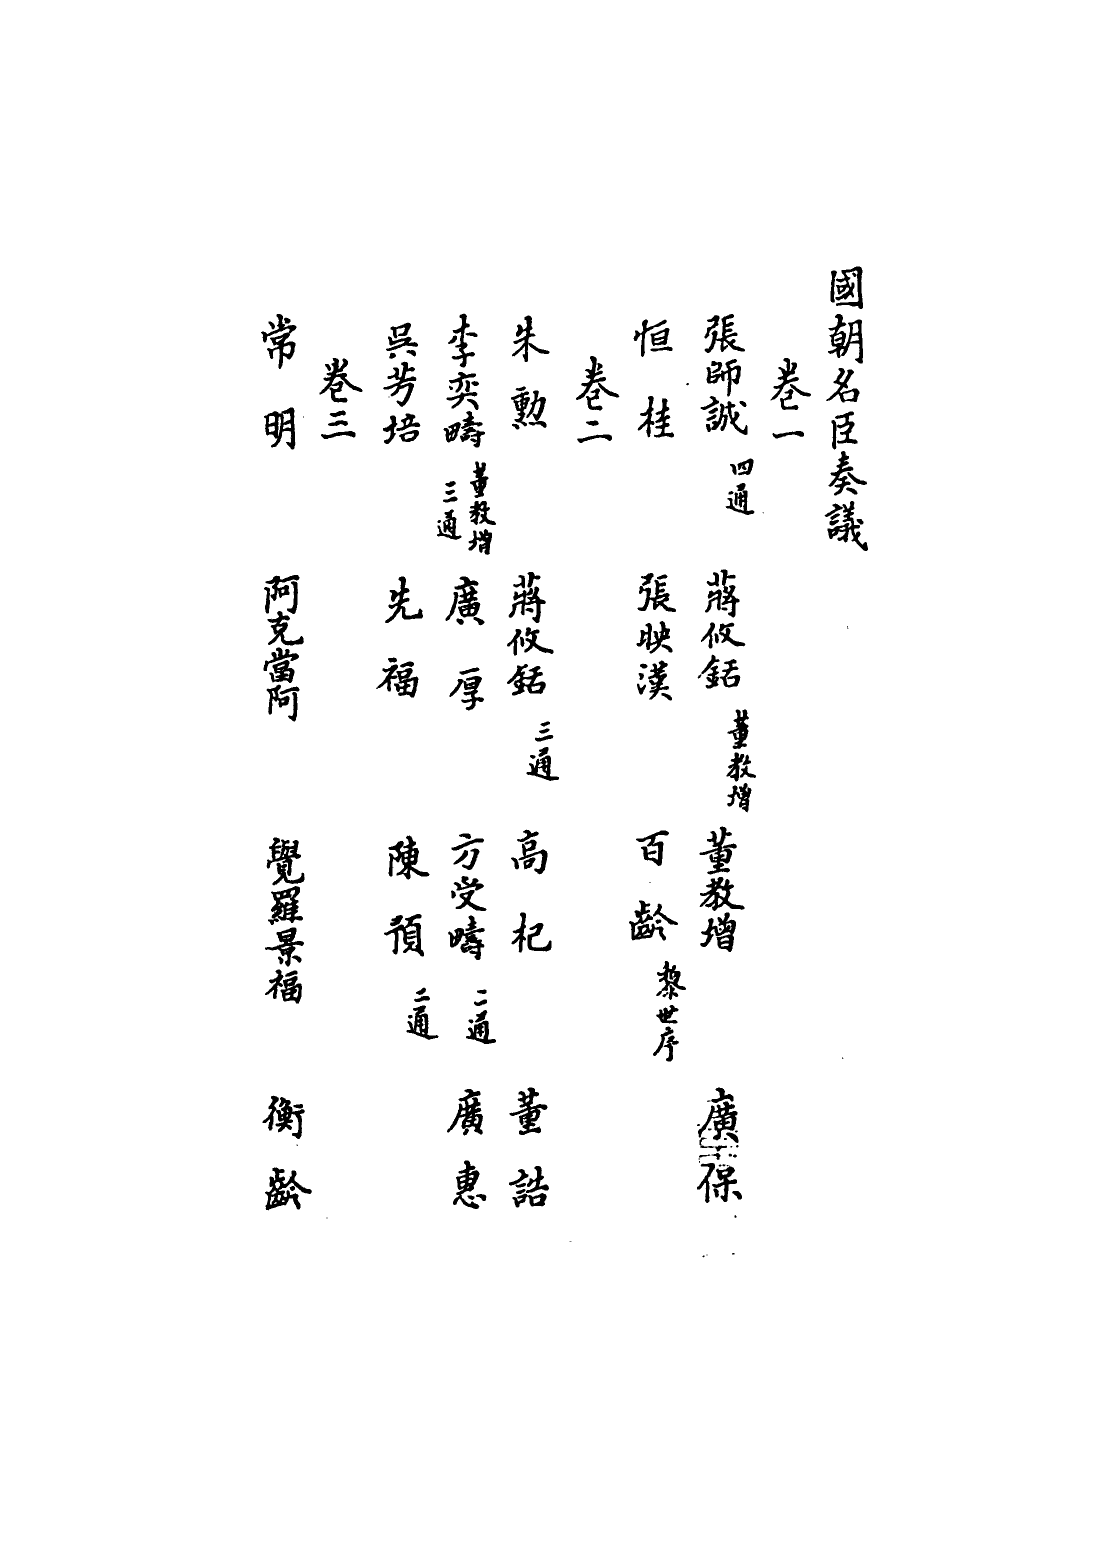 國朝名臣奏議
卷一
張師誠 四通 蔣攸銛 董教增 董教增 廣保
恒桂 張映漢 百齡 黎世序
卷二
朱勳 蔣攸銛 三通 高杞 董誥
李奕疇 董教增 三通 廣厚 方受疇 二通 廣惠
吳芳培 先福 陳預 二通
卷三
常明 阿克當阿 覺羅景福 衡齡